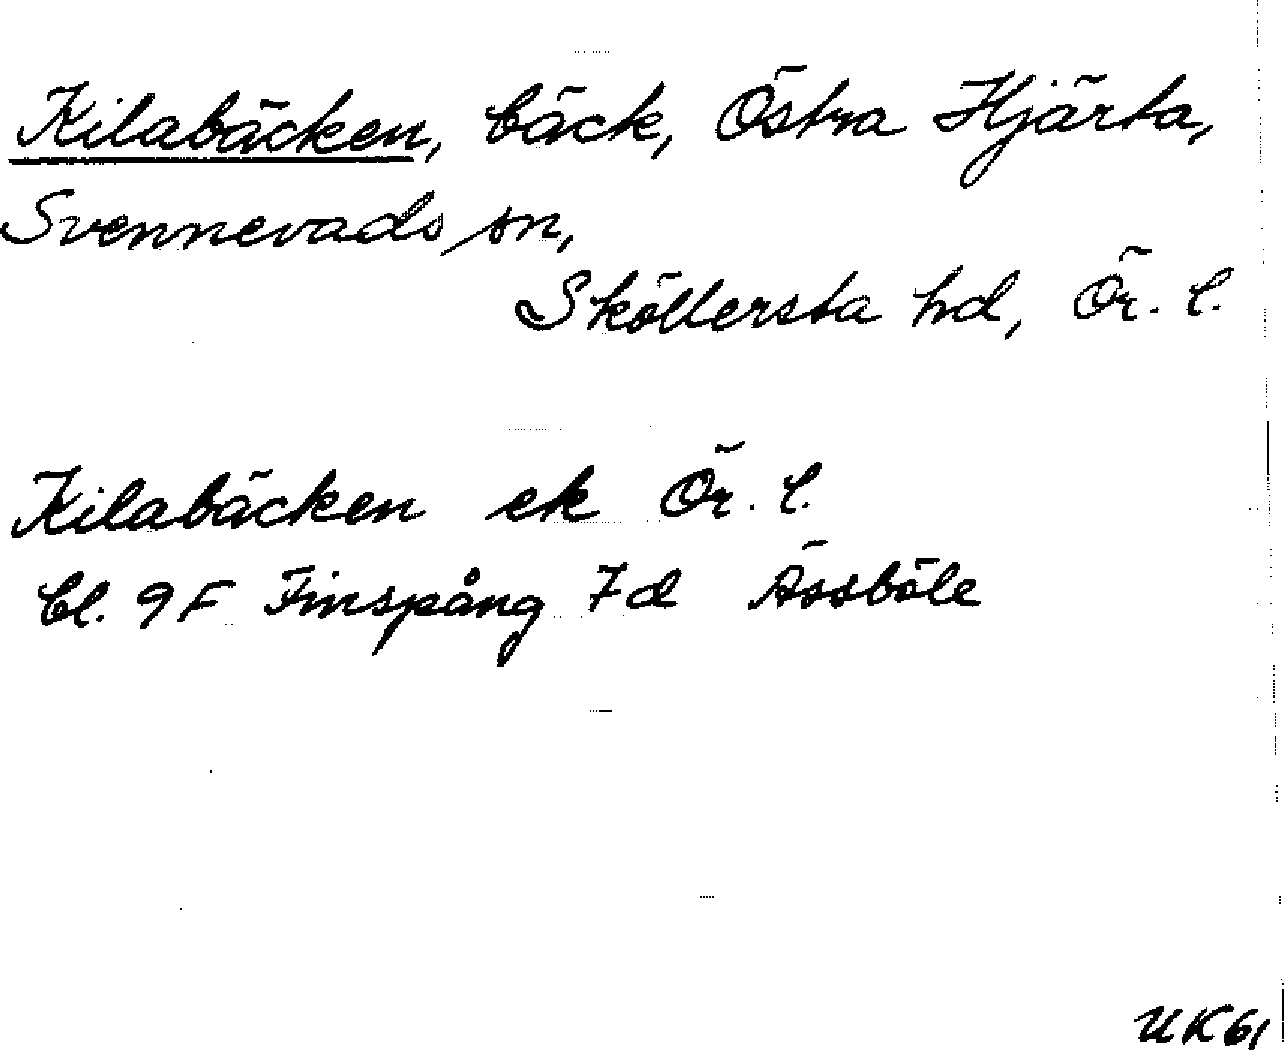 Kilabäcken, bäck, Östra Hjärta,
Svennevads sn,
Sköllersta hd, Ör. l.
Kilabäcken ek Ör. l.
bl. 9F Finspång 7d Ässböle
UK61